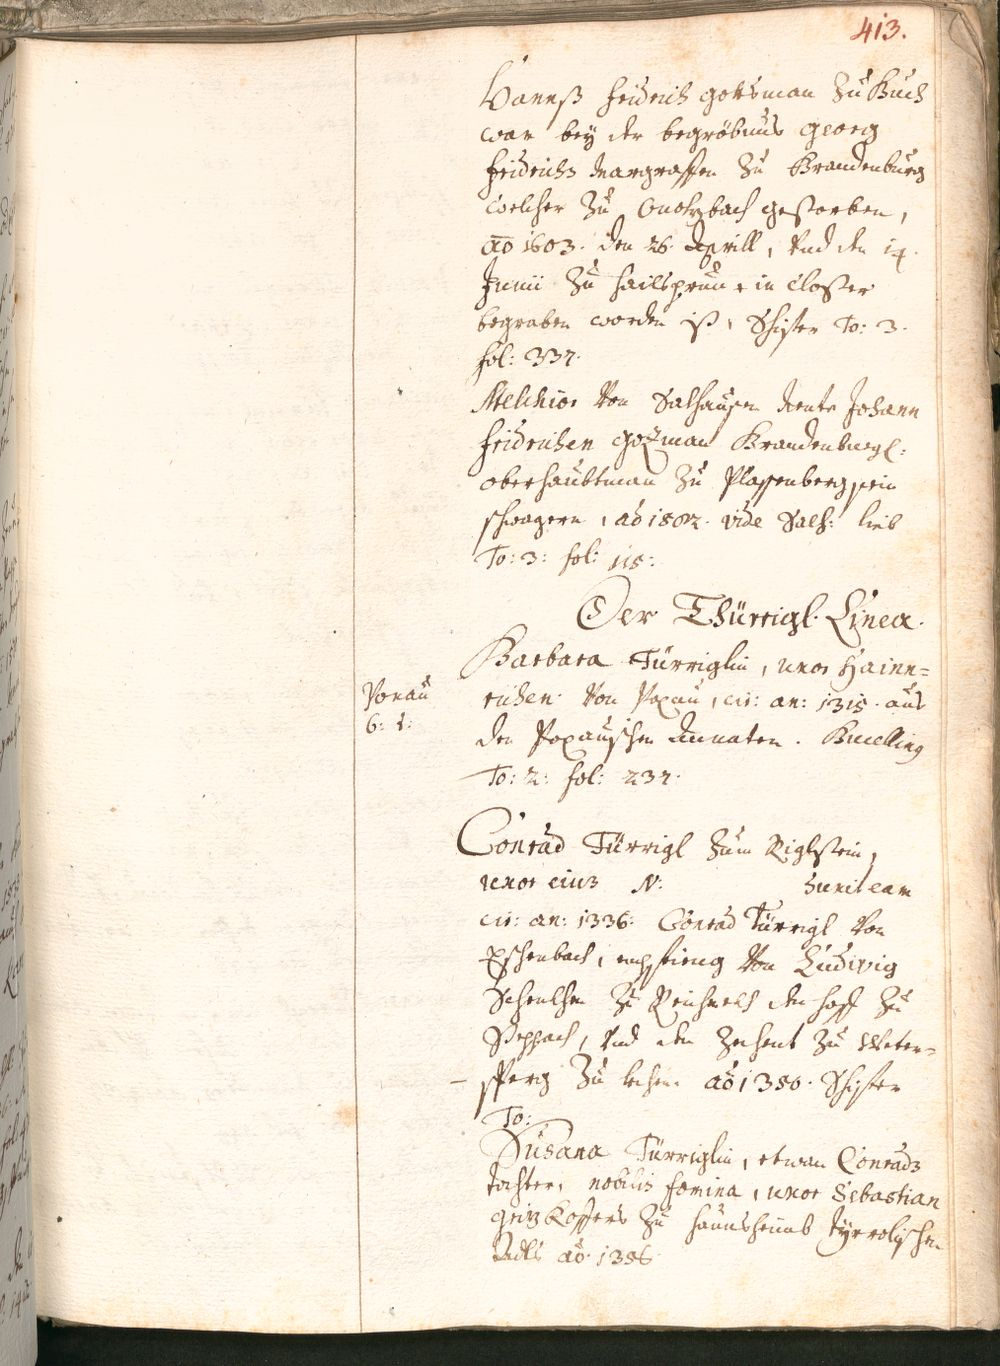 413.
Hannß Fridrich Gottsman Zu Buch
war bey der begröbnus Georg
Fridrichs Margraffen Zu Brandenburg
welcher Zu Onoltzbach gestorben,
ao 1603. den 26. Aprill, Vnd den 14.
Junii Zu Hailsprun in Closter
begraben worden ist, Schifer To: 3.
fol: 337.
Melchior Von Salhausen nente Johann
Fridrichen Gozman Brandenburgl:
oberhaubtman Zu Plassenberg sein
schwagern, ao 1582. vide Salh: lieb
To: 3: fol: 115:
Der Thürrigl. Linea.
Barbara Türriglin, uxor Hainn=
richen Von Poxau, cir: an: 1315. aus
den Poxauischen Annaten. Bucelling
To: 2: fol: 237.
Poxau
6: 1:
Conrad Türrigl Zum Riglstein,
uxor eius N:
cir: an: 1336. Conrad Türrigl Von
Eschenbach, empfieng Von Ludwig
Schenkhen Zu Reichnech den hoff Zu
Seppach, Vnd den Zechent Zu Weter=
sperg Zu lehen ao 1380. Schifer
To:
Susana Türriglin, etwan Conrads
tochter, nobilis fomina, uxor Sebastian
Zu tyrrolischen
Adls ao. 1386